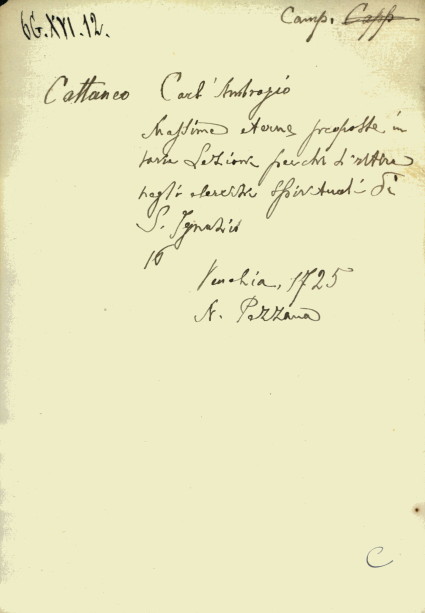 6G.XVI.12.
Camp. Capp
Cattaneo Carl'Ambrogio
Massime eterne proposte in
varie Lezioni per chi si ritira
negli esercizi spirituali di
S. Ignazio
16
Venezia, 1725
N. Pezzana
C